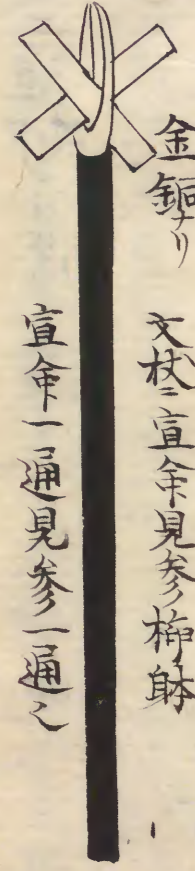 金銅ナリ
文杖ニ宣命見参ヲ挿ム躰
宣命一通見参一通也